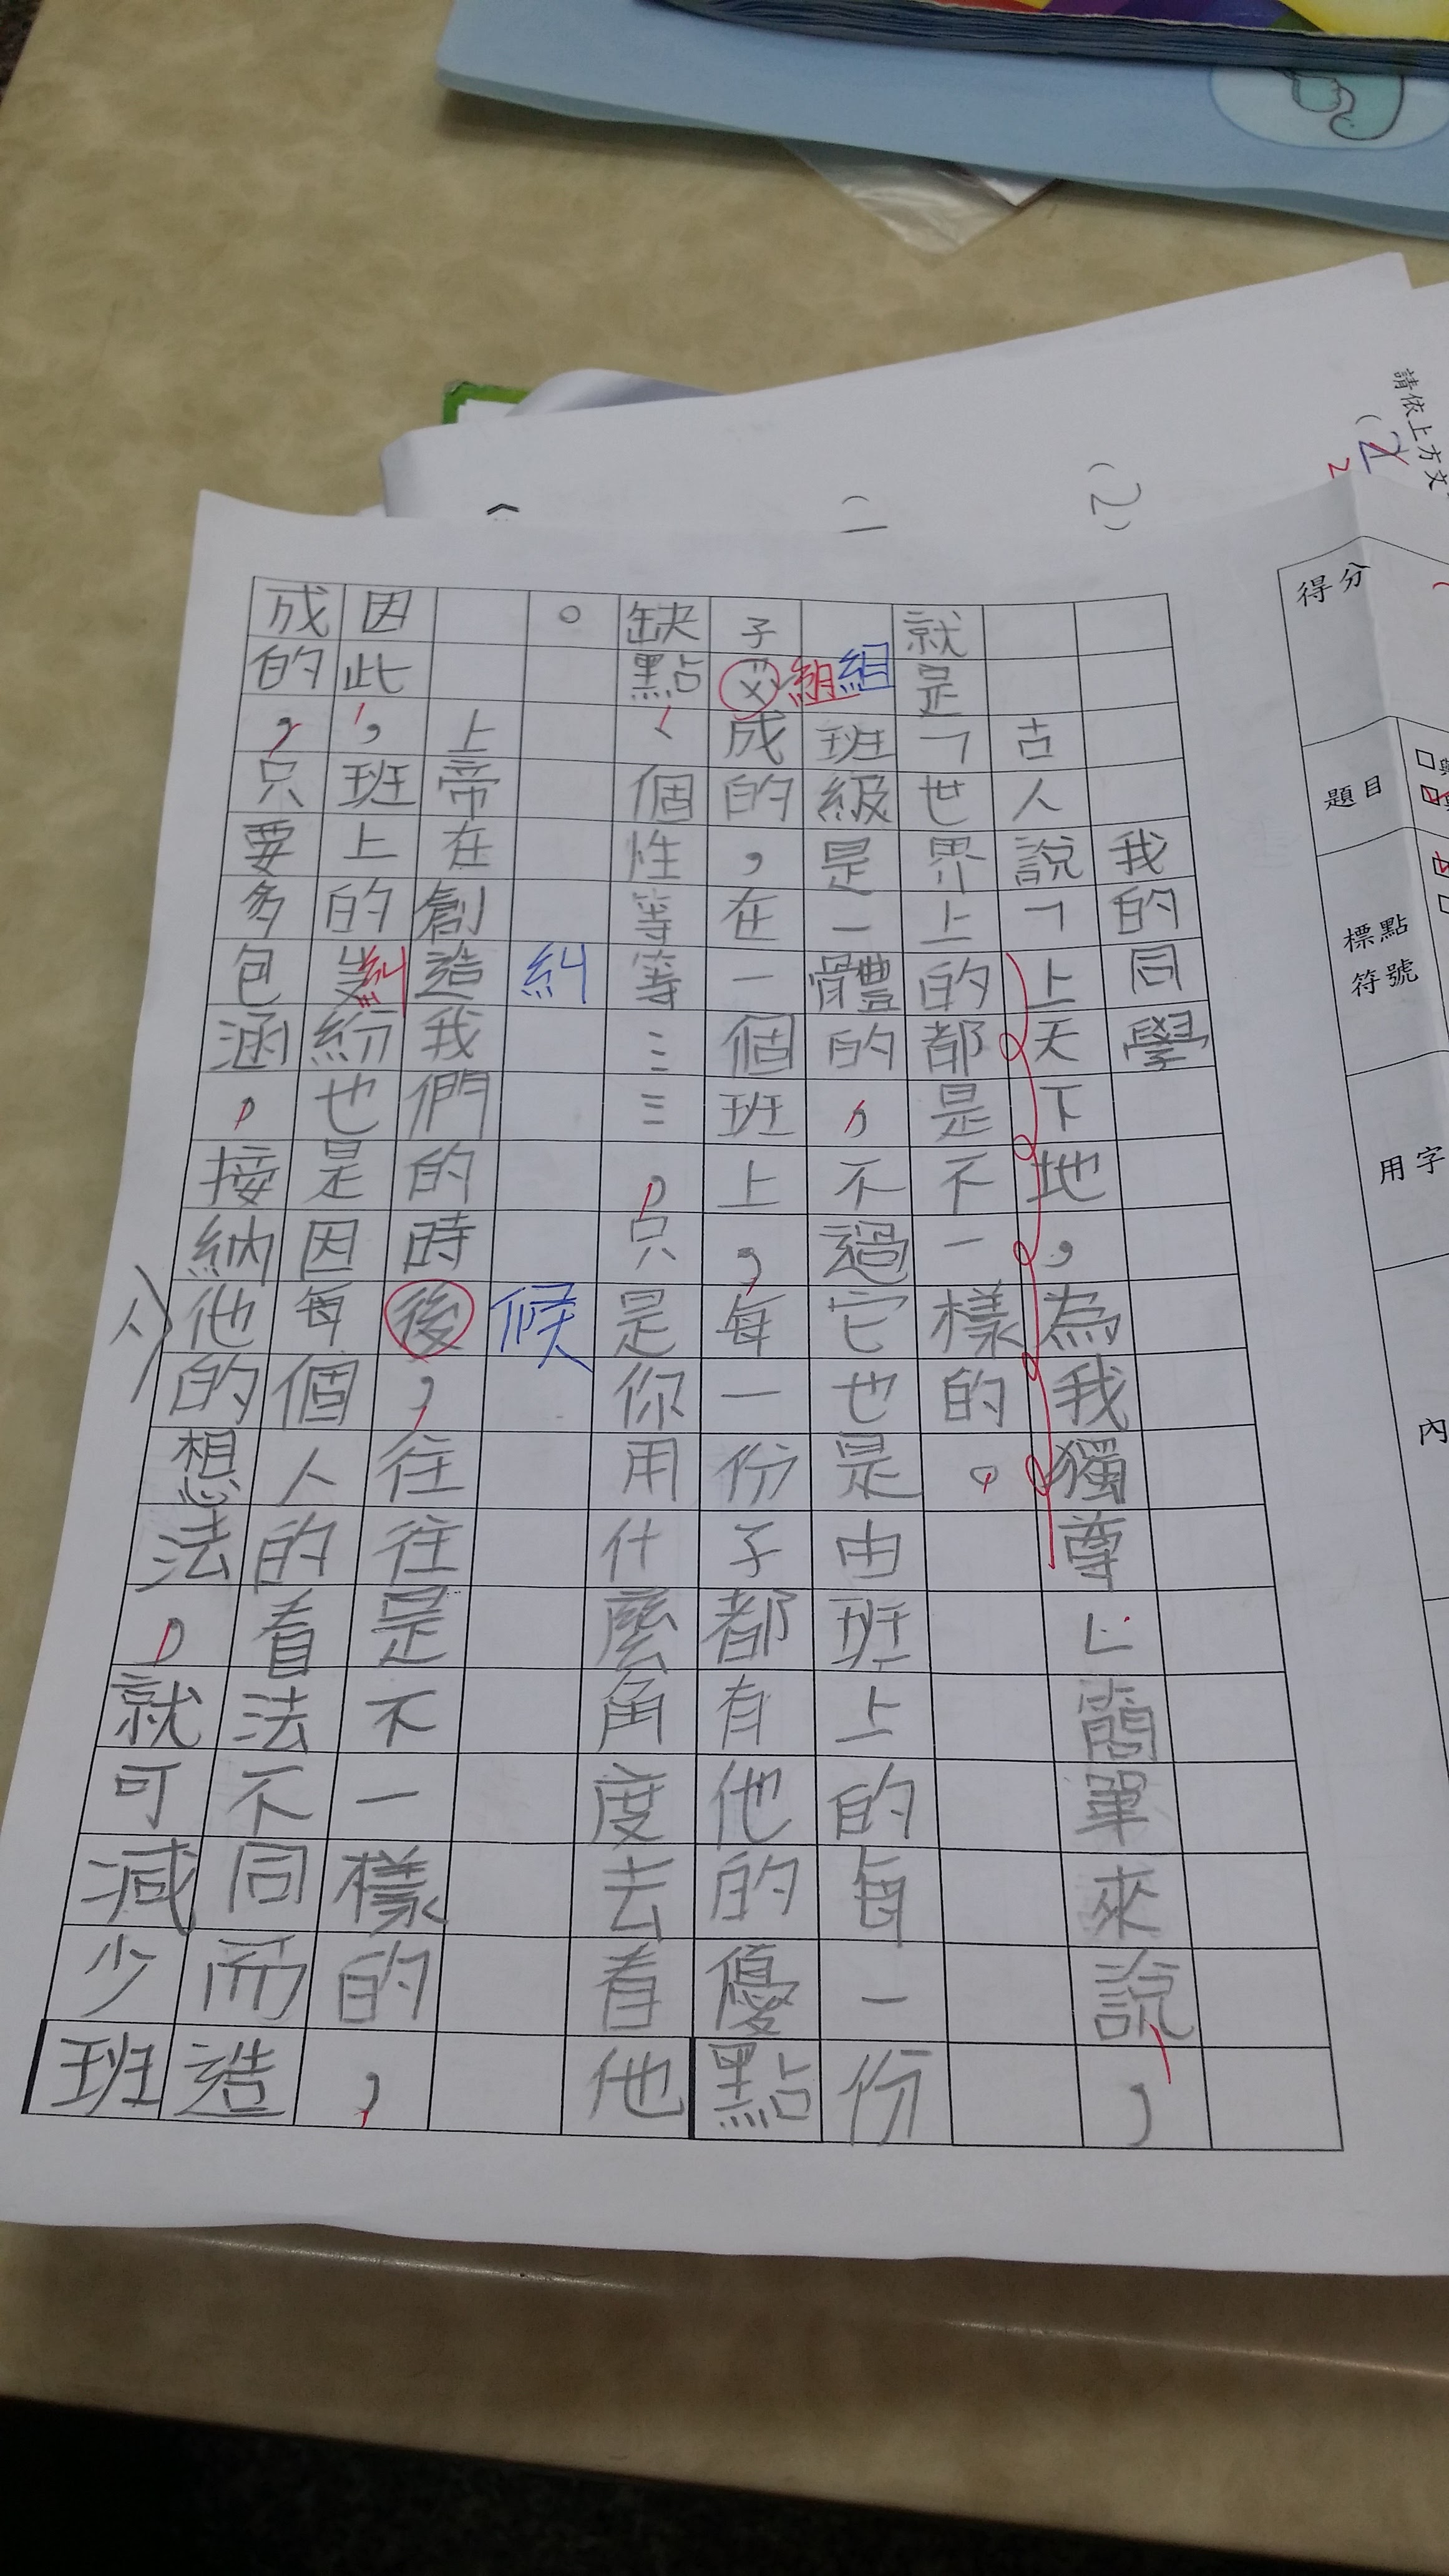 我的同學
古人說「上天下地，為我獨尊」簡單來說，
就是「世界上的都是不一樣的。
組
班級是一體的，不過它也是由班上的每一份
子組成的，在一個班上，每一份子都有他的優點
缺點、個性等等……，只是你用什麼角度去看他
。
糾
候
上帝在創造我們的時後，往往是不一樣的，
因此，班上的糾紛也是因每個人的看法不同而造
成的，只要多包涵，接納他的想法，就可減少班
人
請依上方文
(2)
(1
得分
題目
標點符號
用字
內